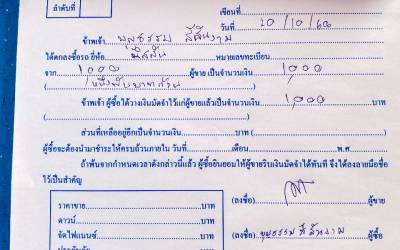 ลำดับที่
เขียนที่
วันที่ 10/10/60
ข้าพเจ้า บุญธรรม
ได้ตกลงซื้อรถ ยี่ห้อ หมายเลขทะเบียน
จาก 1000 ผู้ขาย เป็นจำนวนเงิน 1,000
หนึ่งพันบาทถ้วน
ข้าพเจ้า ผู้ซื้อได้วางเงินมัดจำไว้แก่ผู้ขายแล้วเป็นจำนวนเงิน 1,000 บาท
ส่วนที่เหลืออยู่อีกเป็นจำนวนเงิน บาท
ผู้ซื้อจะต้องนำมาชำระให้ครบถ้วนภายใน วันที่ เดือน พ.ศ.
ถ้าพ้นจากกำหนดเวลาดังกล่าวนี้แล้ว ผู้ซื้อยินยอมให้ผู้ขายริบเงินมัดจำได้ทันที จึงได้ลงลายมือชื่อ
ไว้เป็นสำคัญ
ราคาขาย บาท
(ลงชื่อ) ผู้ขาย
ดาวน์ บาท
จัดไฟแนนซ์ บาท
(ลงชื่อ) บุญธรรม ผู้ซื้อ